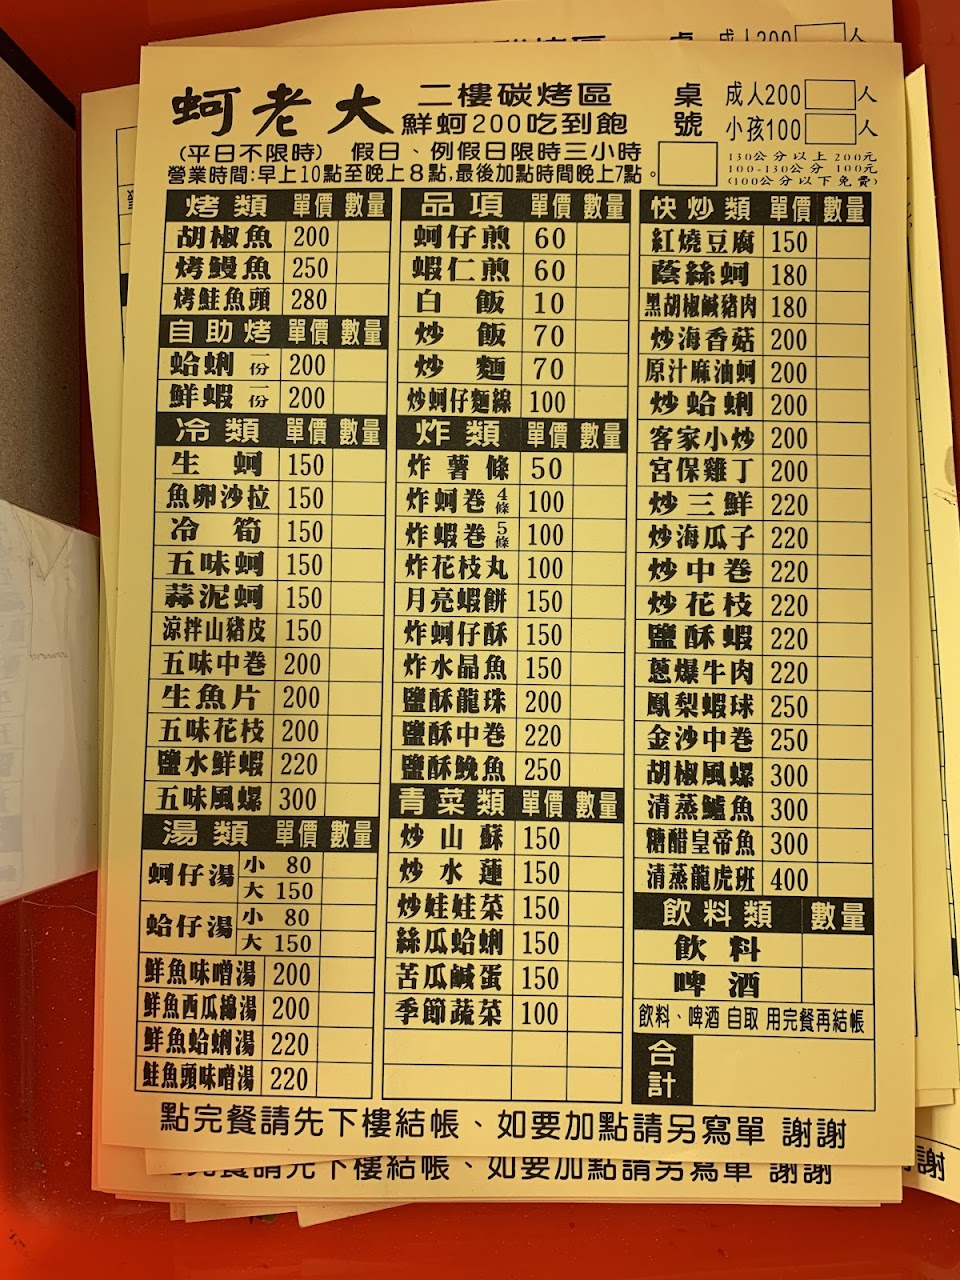 蚵老大
二樓碳烤區
鮮蚵200吃到飽
桌號
成人200 人
小孩100 人
130公分以上 200元
100-130公分 100元
(100公分以下免費)
(平日不限時) 假日、例假日限時三小時
營業時間:早上10點至晚上8點,最後加點時間晚上7點。
烤類 單價 數量
胡椒魚 200
烤鰻魚 250
烤鮭魚頭 280
自助烤 單價 數量
蛤蜊 一份 200
鮮蝦 一份 200
冷類 單價 數量
生蚵 150
魚卵沙拉 150
冷筍 150
五味蚵 150
蒜泥蚵 150
涼拌山豬皮 150
五味中卷 200
生魚片 200
五味花枝 200
鹽水鮮蝦 220
五味風螺 300
湯類 單價 數量
蚵仔湯 小 80
大 150
蛤仔湯 小 80
大 150
鮮魚味噌湯 200
鮮魚西瓜綿湯 200
鮮魚蛤蜊湯 220
鮭魚頭味噌湯 220
品項 單價 數量
蚵仔煎 60
蝦仁煎 60
白飯 10
炒飯 70
炒麵 70
炒蚵仔麵線 100
炸類 單價 數量
炸薯條 50
炸蚵卷 4條 100
炸蝦卷 5條 100
炸花枝丸 100
月亮蝦餅 150
炸蚵仔酥 150
炸水晶魚 150
鹽酥龍珠 200
鹽酥中卷 220
鹽酥鮸魚 250
青菜類 單價 數量
炒山蘇 150
炒水蓮 150
炒娃娃菜 150
絲瓜蛤蜊 150
苦瓜鹹蛋 150
季節蔬菜 100
快炒類 單價 數量
紅燒豆腐 150
蔭絲蚵 180
黑胡椒鹹豬肉 180
炒海香菇 200
原汁麻油蚵 200
炒蛤蜊 200
客家小炒 200
宮保雞丁 200
炒三鮮 220
炒海瓜子 220
炒中卷 220
炒花枝 220
鹽酥蝦 220
蔥爆牛肉 220
鳳梨蝦球 250
金沙中卷 250
胡椒風螺 300
清蒸鱸魚 300
糖醋皇帝魚 300
清蒸龍虎班 400
飲料類 數量
飲料
啤酒
飲料、啤酒 自取 用完餐再結帳
合計
點完餐請先下樓結帳、如要加點請另寫單 謝謝